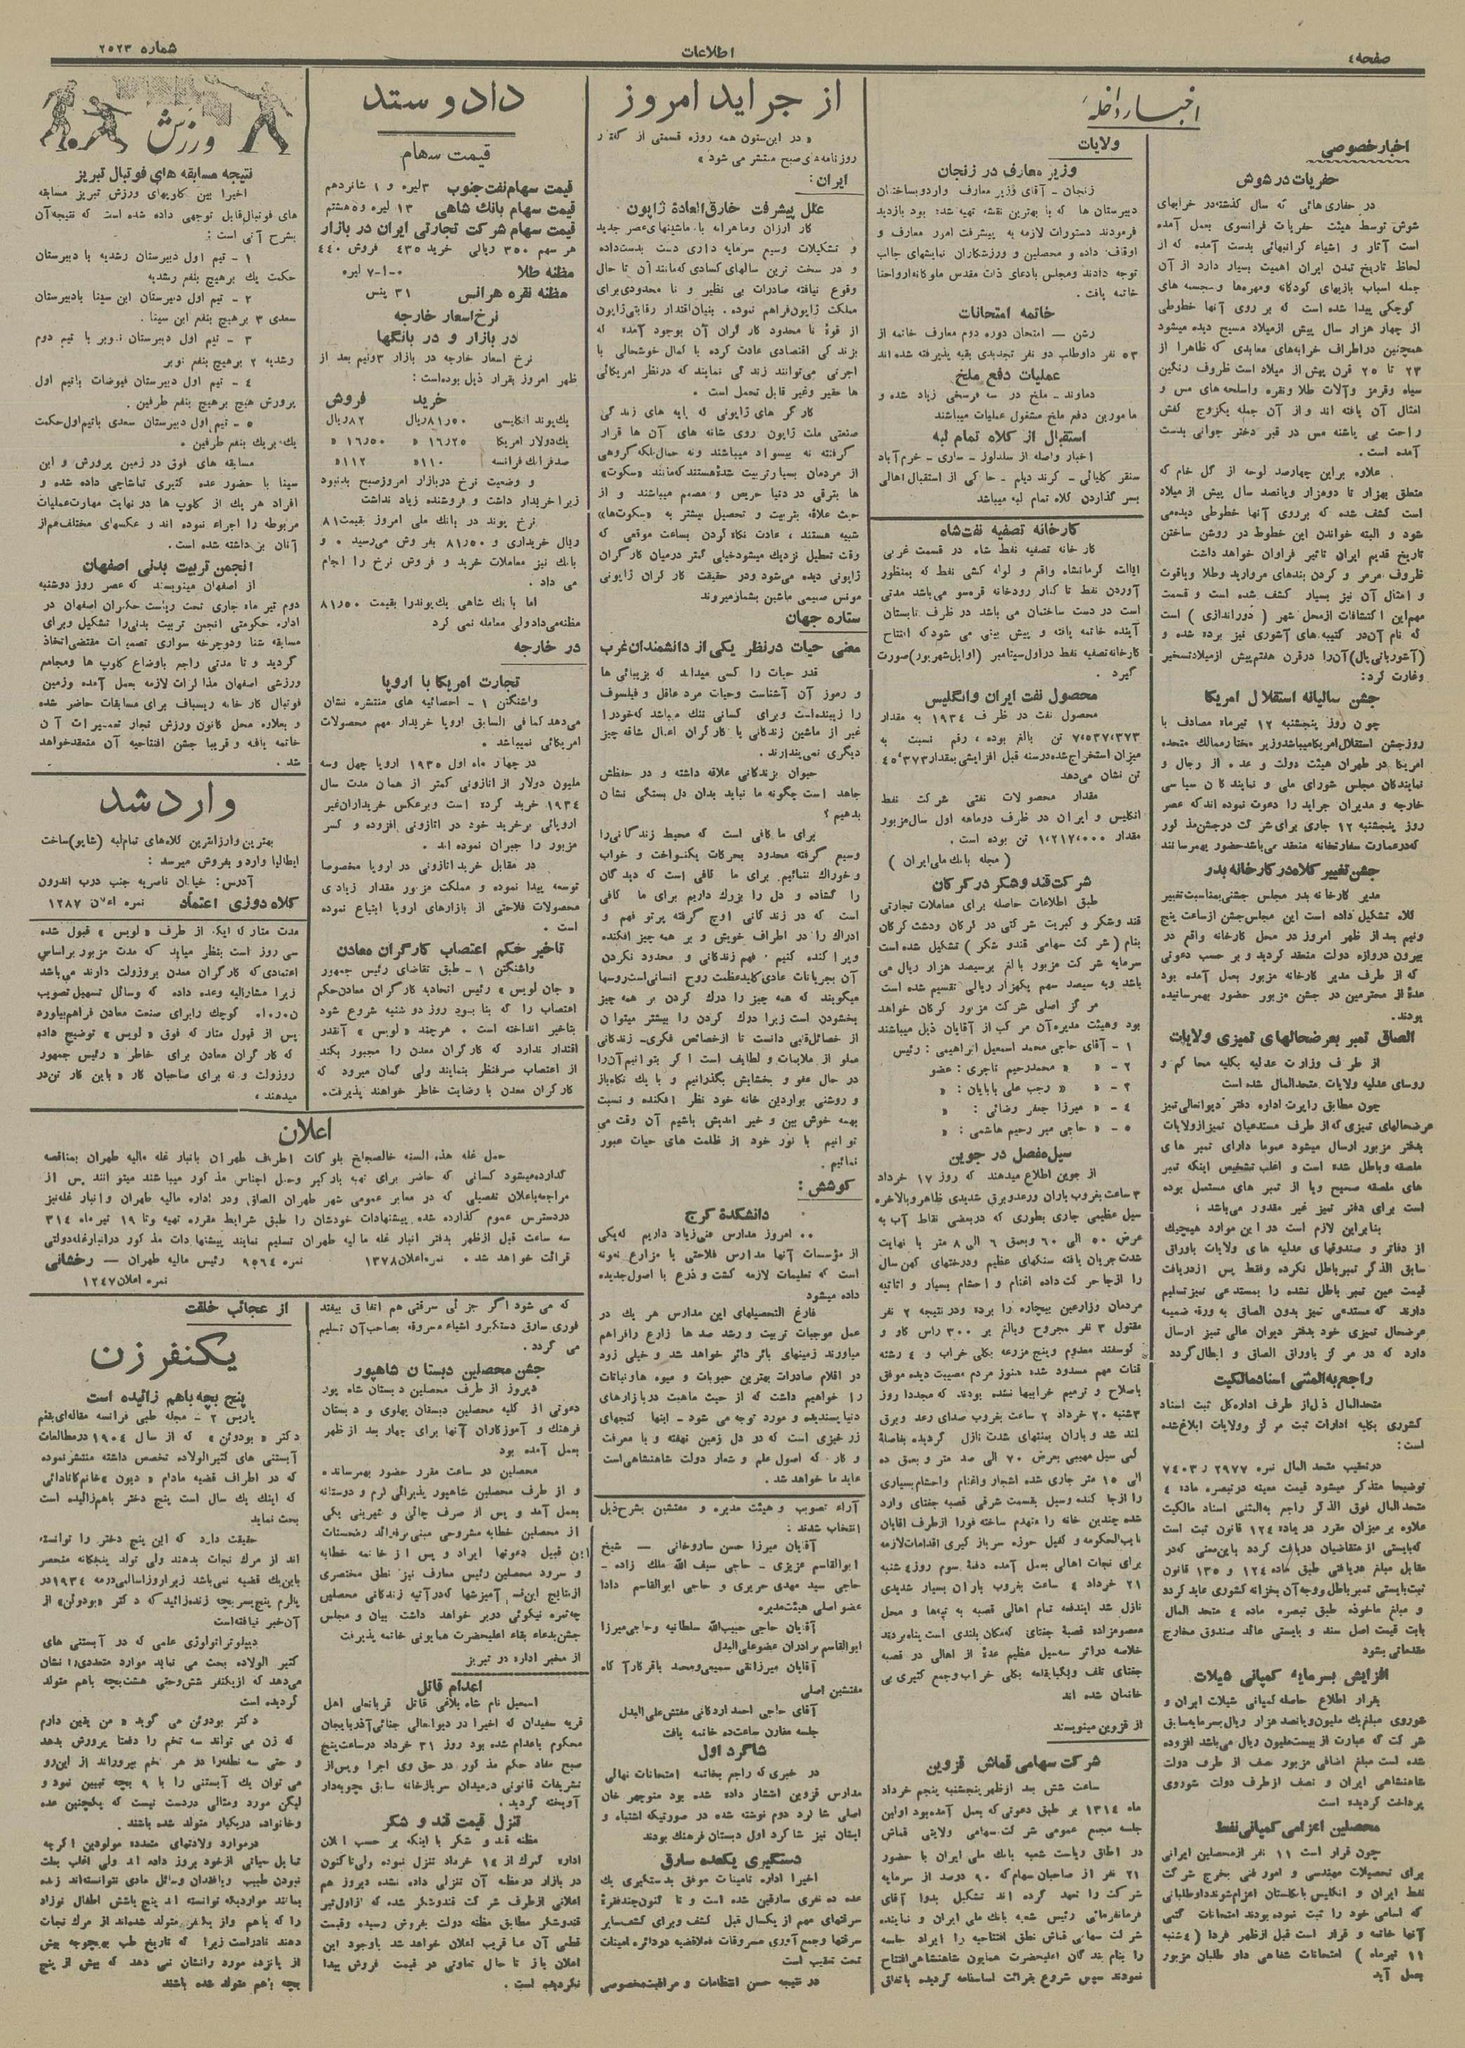 صفحه ٤
اطلاعات
شماره ۲۵۲۳
اخبار داخله
اخبار خصوصی
حفریات در شوش
در حفاری هائی که سال گذشته در خرابهای
شوش توسط هیئت حفریات فرانسوی بعمل آمده
است آثار و اشیاء گرانبهائی بدست آمده که از
لحاظ تاریخ تمدن ایران اهمیت بسیار دارد از آن
جمله اسباب بازیهای کودکانه و مهره‌ها و مجسمه های
کوچکی پیدا شده است که بر روی آنها خطوطی
از چهار هزار سال پیش از میلاد مسیح دیده میشود
همچنین در اطراف خرابه‌های معابدی که ظاهرا از
۲۳ تا ۲۵ قرن پیش از میلاد است ظروف رنگین
سیاه وقرمز وآلات طلا ونقره واسلحه های مس و
امثال آن یافته اند و از آن جمله یکزوج کفش
راحت بی پاشنه مس در قبر دختر جوانی بدست
آمده است .
علاوه براین چهارصد لوحه از گل خام که
متعلق بهزار تا دوهزار و پانصد سال پیش از میلاد
است کشف شده که بر روی آنها خطوطی دیده می
شود و البته خواندن این خطوط در روشن ساختن
تاریخ قدیم ایران تاثیر فراوان خواهد داشت
ظروف مرمر و گردن بندهای مروارید وطلا ویاقوت
و امثال آن نیز بسیار کشف شده است و قسمت
مهم این اکتشافات از محل شهر ( دوراندازی ) است
که نام آن در کتیبه های آشوری نیز برده شده و
(آشوربانی پال) آن را در قرن هفتم پیش از میلاد تسخیر
وغارت کرد:
جشن سالیانه استقلال امریکا
چون روز پنجشنبه ۱۲ تیرماه مصادف با
روز جشن استقلال امریکا میباشد وزیر مختار ممالک متحده
امریکا در طهران هیئت دولت و عده از رجال و
نمایندگان مجلس شورای ملی و نمایندگان سیاسی
خارجه و مدیران جراید را دعوت نموده اند که عصر
روز پنجشنبه ۱۲ جاری برای شرکت در جشن مذکور
که در عمارت سفارتخانه منعقد می باشد حضور بهمرسانند
جشن تغییر کلاه در کارخانه بدر
مدیر کارخانه بدر مجلس جشنی بمناسبت تغییر
کلاه تشکیل داده است این مجلس جشن از ساعت پنج
ونیم بعد از ظهر امروز در محل کارخانه واقع در
بیرون دروازه دولت منعقد گردید و بر حسب دعوتی
که از طرف مدیر کارخانه مزبور بعمل آمده بود
عدهٔ از محترمین در جشن مزبور حضور بهمرسانیده
بودند.
الصاق تمبر بعرضحالهای تمیزی ولایات
از طرف وزارت عدلیه بکلیه محاکم و
روسای عدلیه ولایات متحدالمال شده است
چون مطابق راپرت اداره دفتر دیوانعالی تمیز
عرضحالهای تمیزی که از طرف مستدعیان تمیز از ولایات
بدفتر مزبور ارسال میشود عموما دارای تمبر های
ملصقه وباطل شده است و اغلب تشخیص اینکه تمبر
های ملصقه صحیح ویا از تمبر های مستعمل بوده
است برای دفتر تمیز غیر مقدور می باشد ،
بنابراین لازم است در این موارد هیچیک
از دفاتر و صندوقهای عدلیه های ولایات باوراق
سابق الذکر تمبر باطل نکرده وفقط پس از دریافت
قیمت عین تمبر باطل نشده را بمستدعی تمیز تسلیم
دارند که مستدعی تمیز بدون الصاق به ورقه ضمیمه
عرضحال تمیزی خود بدفتر دیوان عالی تمیز ارسال
دارد که در مرکز باوراق الصاق و ابطال گردد
راجع به المثنی اسناد مالکیت
متحدالمال ذیل از طرف اداره کل ثبت اسناد
کشوری بکلیه ادارات ثبت مرکز وولایات ابلاغ شده
است :
در تعقیب متحد المال نمره ۲۹۷۷ ر ۷٤۰۳
توضیحا متذکر میشود قیمت معینه در تبصره ماده ٤
متحدالمال فوق الذکر راجع به المثنی اسناد مالکیت
علاوه بر میزان مقرر در ماده ۱۲٤ قانون ثبت است
که بایستی از متقاضیان دریافت گردد باین معنی که در
مقابل مبلغ دریافتی طبق ماده ۱۲٤ و ۱۳۵ قانون
ثبت بایستی تمبر باطل ووجه آن بخزانه کشوری عاید گردد
و مبلغ ماخوذه طبق تبصره ماده ٤ متحد المال
بابت قیمت اصل سند و بایستی عائد صندوق مخارج
مقدماتی بشود
افزایش بسرمایه کمپانی شیلات
بقرار اطلاع حاصله کمپانی شیلات ایران و
شوروی مبلغ یک ملیون و پانصد هزار ریال بسرمایه سابق
شرکت که عبارت از بیست ملیون ریال می باشد افزوده
شده است مبلغ اضافی مزبور نصف از طرف دولت
شاهنشاهی ایران و نصف از طرف دولت شوروی
پرداخت گردیده است
محصلین اعزامی کمپانی نفط
چون قرار است ۱۱ نفر از محصلین ایرانی
برای تحصیلات مهندسی و امور فنی بخرج شرکت
نفط ایران و انگلیس بانگلستان اعزام شوند داوطلبانی
که اسامی خود را ثبت نموده بودند امتحانات کتبی
آنها خاتمه و قرار است قبل از ظهر فردا ( ٤شنبه
۱۱ تیرماه ) امتحانات شفاهی داوطلبان مزبور
بعمل آید
ولایات
وزیر معارف در زنجان
زنجان - آقای وزیر معارف وارد و ساختمان
دبیرستان ها که با بهترین نقشه تهیه شده بود بازدید
فرمودند دستورات لازمه به پیشرفت امور معارف و
اوقاف داده و محصلین و ورزشکاران نمایشهای جالب
توجه دادند و مجلس بادعای ذات مقدس ملوکانه ارواحنا
خاتمه یافت .
خاتمه امتحانات
رشت - امتحان دوره دوم معارف خاتمه از
۵۳ نفر داوطلب دو نفر تجدیدی بقیه پذیرفته شده اند
عملیات دفع ملخ
دماوند - ملخ در سه فرسخی زیاد شده و
مامورین دفع ملخ مشغول عملیات میباشند
استقبال از کلاه تمام لبه
اخبار واصله از سلدوز - ساری - خرم آباد
سنقر کلیائی - کرند دیلم - حاکی از استقبال اهالی
بسر گذاردن کلاه تمام لبه میباشد
کارخانه تصفیه نفت شاه
کارخانه تصفیه نفط شاه در قسمت غربی
ایالت کرمانشاه واقع و لوله کشی نفط که بمنظور
آوردن نفط تا کنار رودخانه قره‌سو می باشد مدتی
است در دست ساختمان می باشد در ظرف تابستان
آینده خاتمه یافته و پیش بینی می شود که افتتاح
کارخانه تصفیه نفط در اول سپتامبر (اوایل شهریور) صورت
گیرد .
محصول نفت ایران وانگلیس
محصول نفت در ظرف ۱۹۳٤ به مقدار
۷،۵۳۷،۳۷۳ تن بالغ بوده ، رقم نسبت به
میزان استخراج شده درسنه قبل افزایشی بمقدار ۳۷۳،٤۵
تن نشان می‌دهد
مقدار محصولات نفتی شرکت نفط
انگلیس و ایران در ظرف دوماهه اول سال مزبور
مقدار ۱،۲۱۷،۰۰۰ تن بوده است .
( مجله بانک ملی ایران )
شرکت قند وشکر در گرگان
طبق اطلاعات حاصله برای معاملات تجارتی
قند وشکر و کبریت شرکتی در گرگان ودشت گرگان
بنام ( شرکت سهامی قند و شکر ) تشکیل شده است
سرمایه شرکت مزبور بالغ بر سیصد هزار ریال می
باشد وبه سیصد سهم یکهزار ریالی تقسیم شده است
مرکز اصلی شرکت مزبور گرگان خواهد
بود وهیئت مدیره آن مرکب از آقایان ذیل میباشند
۱ - آقای حاجی محمد اسمعیل ابراهیمی : رئیس
۲ - « « محمدرحیم تاجری : عضو
۳ - « « رجب علی بابایان : «
٤ - « میرزا جعفر رضائی : «
۵ - « حاجی میر رحیم هاشمی : «
سیل مفصل در جوین
از جوین اطلاع میدهند که روز ۱۷ خرداد
۳ ساعت بغروب باران ورعد وبرق شدیدی ظاهر و بالاخره
سیل عظیمی جاری بطوری که در بعضی نقاط آب به
عرض ۵۰ الی ۶۰ و بعمق ۶ الی ۸ متر با نهایت
شدت جریان یافته سنگهای عظیم ودرختهای کهن سال
را از جا حرکت داده اغنام و احشام بسیار و اثاثیه
مردمان وزارعین بیچاره را برده ودر نتیجه ۲ نفر
مقتول ۳ نفر مجروح وبالغ بر ۳۰۰ راس گاو و
گوسفند معدوم وپنج مزرعه بکلی خراب و ٤ رشته
قنات مهم مسدود شده هنوز مردم مصیبت دیده موفق
باصلاح و ترمیم خرابیها نشده بودند که مجددا روز
۳شنبه ۲۰ خرداد ۲ ساعت بغروب صدای رعد وبرق
بلند شد و باران بمنتهای شدت نازل گردیده بفاصلهٔ
کمی سیل مهیبی بعرض ۷۰ الی صد متر و بعمق ده
الی ۱۵ متر جاری شده اشجار واغنام واحشام بسیاری
را از جا کنده وسیل بقسمت شرقی قصبه جغتای وارد
شده چندین خانه را منهدم ساخته فورا از طرف آقایان
نایب الحکومه و کفیل حوزه سرباز گیری اقدامات لازمه
برای نجات اهالی بعمل آمده دفعهٔ سوم روز ٤ شنبه
۲۱ خرداد ٤ ساعت بغروب باران بسیار شدیدی
نازل شد ایندفعه تمام اهالی قصبه به تپه‌ها و محل
معصومزاده قصبهٔ جغتای که مکان بلندی است پناه بردند
خلاصه در اثر سه سیل عظیم عدهٔ از اهالی در قصبه
جغتای تلف و یکباب قلعه بکلی خراب وجمع کثیری بی
خانمان شده اند
از قزوین مینویسند
شرکت سهامی قماش قزوین
ساعت شش بعد از ظهر پنجشنبه پنجم خرداد
ماه ۱۳۱٤ بر طبق دعوتی که بعمل آمده بود اولین
جلسه مجمع عمومی شرکت سهامی ولایتی قماش
در اطاق ریاست شعبه بانک ملی ایران با حضور
۲۱ نفر از صاحبان سهام که ۹۰ درصد از سرمایه
شرکت را تعهد کرده اند تشکیل بدوا آقای
فرمانفرمائی رئیس شعبه بانک ملی ایران و نماینده
شرکت سهامی قماش نطق افتتاحیه را ایراد جلسه
را بنام بندگان اعلیحضرت همایون شاهنشاهی افتتاح
نمودند سپس شروع بقرائت اساسنامه گردیده باتفاق
از جراید امروز
« در این ستون همه روزه قسمتی از گفتار
روزنامه‌های صبح منتشر می شود »
ایران :
علل پیشرفت خارق العادهٔ ژاپون
کار ارزان وماهرانه با ماشینهای عصر جدید
و تشکیلات وسیع سرمایه داری دست بدست داده
و در سخت ترین سالهای کسادی که مانند آن تا حال
وقوع نیافته صادرات بی نظیر و نا محدودی برای
مملکت ژاپون فراهم نموده. بنیان اقتدار رقابتی ژاپون
از قوهٔ نا محدود کارگران آن بوجود آمده که
بزندگی اقتصادی عادت کرده با کمال خوشحالی با
اجرتی می‌توانند زندگی نمایند که در نظر امریکائی
ها حقیر وغیر قابل تحمل است .
کارگرهای ژاپونی که پایه های زندگی
صنعتی ملت ژاپون روی شانه های آن ها قرار
گرفته نه بیسواد میباشند ونه حمال بلکه گروهی
از مردمان بسیار تربیت شده هستند که مانند «سکوت»
ها بترقی در دنیا حریص و مصمم میباشند و از
حیث علاقه بتربیت و تحصیل بیشتر به «سکوت‌ها»
شبیه هستند ، عادت نگاه کردن بساعت موقعی که
وقت تعطیل نزدیک میشود خیلی کمتر درمیان کارگران
ژاپونی دیده می شود ودر حقیقت کارگران ژاپونی
مونس صمیمی ماشین بشمار میروند
ستاره جهان
معنی حیات در نظر یکی از دانشمندان غرب
قدر حیات را کسی میداند که بزیبائی ها
و رموز آن آشناست وحیات مرد عاقل و فیلسوف
را زیبنده است وبرای کسانی ننگ میباشد که خود را
غیر از ماشین زندگانی یا کارگران اعمال شاقه چیز
دیگری نمی پندارند.
حیوان بزندگانی علاقه داشته و در حفظش
جاهد است چگونه ما نباید بدان دل بستگی نشان
بدهیم ؟
برای ما کافی است که محیط زندگانی را
وسیع گرفته محدود بحرکات یکنواخت و خواب
و خوراک ننمائیم. برای ما کافی است که دیدگان
را گشاده و دل را بزرگ داریم برای ما کافی
است که در زندگانی اوج گرفته پرتو فهم و
ادراک را در اطراف خویش و بر همه چیز افکنده
وپراکنده کنیم . فهم زندگانی و محدود نکردن
آن بجریانات عادی کلید عظمت روح انسانی است روسها
میگویند که همه چیز را درک کردن بر همه چیز
بخشودن است زیرا درک کردن را بیشتر میتوان
از خصائل قلبی دانست تا از خصائص فکری- زندگانی
مملو از ملایمات و لطایف است اگر بتوانیم آن را
در حال عفو و بخشایش بگذرانیم و با یک نگاه باز
و روشنی بواردین خانه خود نظر افکنده و نسبت
بهمه خوش بین و خیر اندیش باشیم آن وقت می
توانیم با نور خود از ظلمت های حیات عبور
نمائیم .
کوشش :
دانشکدهٔ کرج
.. امروز مدارس فنی زیاد داریم که یکی
از مؤسسات آنها مدارس فلاحتی با مزارع نمونه
است که تعلیمات لازمه کشت و ذرع با اصول جدیده
داده میشود
فارغ التحصیلهای این مدارس هر یک در
عمل موجبات تربیت و رشد صد ها زارع را فراهم
میاورند زمینهای بائر دائر خواهد شد و خیلی زود
در اقلام صادرات بهترین حبوبات و میوه ها و نباتات
را خواهیم داشت که از حیث ماهیت در بازارهای
دنیا پسندیده و مورد توجه می شود - اینها گنجهای
زر خیزی است که در دل زمین نهفته و با معرفت
و کار که اصول علم و شعار دولت شاهنشاهی است
عاید ما خواهد شد.
آراء تصویب و هیئت مدیره و مفتشین بشرح ذیل
انتخاب شدند :
آقایان میرزا حسن ساروخانی - شیخ
ابوالقاسم عزیزی - حاجی سیف الله ملک زاده -
حاجی سید مهدی حریری و حاجی ابوالقاسم دادا
عضو اصلی هیئت مدیره
آقایان حاجی حبیب الله سلطانیه وحاجی میرزا
ابوالقاسم برادران عضو علی البدل
آقایان میرزا تقی سمیعی ومحمد باقر کارآگاه
مفتشین اصلی
آقای حاجی احمد اردکانی مفتش علی البدل
جلسه مقارن ساعت ده خاتمه یافت
شاگرد اول
در خبری که راجع بخاتمه امتحانات نهائی
مدارس قزوین انتشار داده شده بود منوچهر خان
اصلی شاگرد دوم نوشته شده در صورتیکه اشتباه و
ایشان نیز شاگرد اول دبستان فرهنگ بودند
دستگیری یکعده سارق
اخیرا اداره تامینات موفق بدستگیری یک
عده ده نفری سارقین شده است و تا کنون چند فقرهٔ
سرقتهای مهم از یکسال قبل کشف وبرای کشف سایر
سرقتها وجمع آوری مسروقات فعلا قضیه در دائره تامینات
تحت تعقیب است
در نتیجه حسن انتظامات و مراقبت مخصوصی
که می شود اگر جزئی سرقتی هم اتفاق بیفتد
فوری سارق دستگیر و اشیاء مسروقه بصاحب آن تسلیم
می گردد .
جشن محصلین دبستان شاهپور
دیروز از طرف محصلین دبستان شاه پور
دعوتی از کلیه محصلین دبستان پهلوی و دبستان
فرهنگ و آموزگاران آنها برای چهار بعد از ظهر
بعمل آمده بود
محصلین در ساعت مقرر حضور بهمرسانده
و از طرف محصلین شاهپور پذیرائی گرم و دوستانه
بعمل آمد و پس از صرف چائی و شیرینی یکی
از محصلین خطابه مشروحی مبنی بر فوائد ومحسنات
این قبیل دعوتها ایراد و پس از خاتمه خطابه
و سرود محصلین رئیس معارف نیز نطق مختصری
از نتایج این قسم آمیزشها که در آتیه زندگانی محصلین
چه ثمره نیکوئی در بر خواهد داشت بیان و مجلس
جشن بدعاء بقاء اعلیحضرت همایونی خاتمه پذیرفت
از مخبر اداره در تبریز
اعدام قاتل
اسمعیل نام شاه بلاغی قاتل قربانعلی اهل
قریه سفیدان که اخیرا در دیوانعالی جنائی آذربایجان
محکوم باعدام شده بود روز ۳۱ خرداد در ساعت پنج
صبح مفاد حکم مذکور در حق وی اجرا و پس از
تشریفات قانونی درمیدان سربازخانه سابق چوبه دار
آویخته گردید .
تنزل قیمت قند و شکر
مظنه قند و شکر با اینکه بر حسب اعلان
اداره گمرک از ۱٤ خرداد تنزل نموده ولی تاکنون
در بازار در مظنه آن تنزلی داده نشده دیروز هم
اعلانی از طرف شرکت قند و شکر شده که از اول تیر
قند و شکر مطابق مظنه دولت بفروش رسیده وقیمت
قطعی آن عما قریب اعلان خواهد شد باوجود این
اعلان باز تا حال تفاوتی در قیمت فروش پیدا
نگردیده است .
داد و ستد
قیمت سهام
قیمت سهام نفت جنوب ۳ لیره و ۱ شانزدهم
قیمت سهام بانک شاهی ۱۳ لیره و ه هشتم
قیمت سهام شرکت تجارتی ایران در بازار
هر سهم ۳۵۰ ریالی خرید ٤۳۵ فروش ٤٤۰
مظنه طلا ۷-۱-۰ لیره
مظنه نقره هرانس ۳۱ پنس
نرخ اسعار خارجه
در بازار و در بانگها
نرخ اسعار خارجه در بازار ۳ ونیم بعد از
ظهر امروز بقرار ذیل بوده است :
خرید فروش
یک پوند انگلیسی ۸۱٫۵۰ ریال ۸۲ ریال
یک دولار امریکا ۱۶٫۲۵ « ۱۶٫۵۰ «
صد فرانک فرانسه ۱۱۰ « ۱۱۲ «
و وضعیت نرخ در بازار امروز صبح بد نبود
زیرا خریدار داشت و فروشنده زیاد نداشت
نرخ پوند در بانک ملی امروز بقیمت ۸۱
ریال خریداری و ۸۱٫۵۰ بفروش می رسید . و
بانک نیز معاملات خرید و فروش نرخ را انجام
می داد .
اما بانک شاهی یک پوند را بقیمت ۸۱٫۵۰
مظنه می داد ولی معامله نمی کرد
در خارجه
تجارت امریکا با اروپا
واشنگتن ۱ - احصائیه های منتشره نشان
می‌دهد کما فی السابق اروپا خریدار مهم محصولات
امریکائی نمیباشد .
در چهار ماه اول ۱۹۳۵ اروپا چهل وسه
ملیون دولار از اتازونی کمتر از همان مدت سال
۱۹۳٤ خرید کرده است وبرعکس خریداران غیر
اروپائی بر خرید خود در اتازونی افزوده و کسر
مزبور را جبران نموده اند .
در مقابل خرید اتازونی در اروپا مخصوصا
توسعه پیدا نموده و مملکت مزبور مقدار زیادی
محصولات فلاحتی از بازارهای اروپا ابتیاع نموده
است .
تاخیر حکم اعتصاب کارگران معادن
واشنگتن ۱ - طبق تقاضای رئیس جمهور
« جان لویس » رئیس اتحادیه کارگران معادن حکم
اعتصاب را که بنا بود روز دو شنبه شروع شود
بتاخیر انداخته است . هرچند «لویس» آنقدر
اقتدار ندارد که کارگران معدن را مجبور بکند
از اعتصاب صرفنظر بنمایند ولی گمان میرود که
کارگران معدن با رضایت خاطر خواهند پذیرفت.
ورزش
نتیجه مسابقه های فوتبال تبریز
اخیرا بین کلوبهای ورزش تبریز مسابقه
های فوتبال قابل توجهی داده شده است که نتیجه آن
بشرح آتی است :
۱ - تیم اول دبیرستان رشدیه با دبیرستان
حکمت یک بر هیچ بنفع رشدیه
۲ - تیم اول دبیرستان ابن سینا بادبیرستان
سعدی ۳ بر هیچ بنفع ابن سینا .
۳ - تیم اول دبیرستان نوبر با تیم دوم
رشدیه ۲ بر هیچ بنفع نوبر
٤ - تیم اول دبیرستان فیوضات باتیم اول
پرورش هیچ بر هیچ بنفع طرفین .
۵ - تیم اول دبیرستان سعدی باتیم اول حکمت
یک بر یک بنفع طرفین «
مسابقه های فوق در زمین پرورش و ابن
سینا با حضور عده کثیری تماشاچی داده شده و
افراد هر یک از کلوب ها در نهایت مهارت عملیات
مربوطه را اجراء نموده اند و عکسهای مختلف هم از
آنان برداشته شده است .
انجمن تربیت بدنی اصفهان
از اصفهان مینویسند که عصر روز دوشنبه
دوم تیر ماه جاری تحت ریاست حکمران اصفهان در
اداره حکومتی انجمن تربیت بدنی را تشکیل و برای
مسابقه شنا ودوچرخه سواری تصمیمات مقتضی اتخاذ
گردید و تا مدتی راجع باوضاع کلوب ها ومجامع
ورزشی اصفهان مذاکرات لازمه بعمل آمده وزمین
فوتبال کارخانه ریسباف برای مسابقات حاضر شده
و بعلاوه محل کانون ورزش تجار تعمیرات آن
خاتمه یافته و قریبا جشن افتتاحیه آن منعقد خواهد
شد .
وارد شد
بهترین وارزانترین کلاه‌های تمام لبه (شاپو) ساخت
ایطالیا وارد و بفروش میرسد :
آدرس: خیابان ناصریه جنب درب اندرون
کلاه دوزی اعتماد نمره اعلان ۱۲۸۷
مدت متارکه ایکه از طرف « لویس » قبول شده
سی روز است بنظر میاید که مدت مزبور بر اساس
اعتمادی که کارگران معدن بروزولت دارند می باشد
زیرا مشارالیه وعده داده که وسائل تسهیل تصویب
ن.ر.ا. کوچک را برای صنعت معادن فراهم بیاورد
پس از قبول متارکه فوق « لویس » توضیح داده
که کارگران معادن برای خاطر « رئیس جمهور
روزولت و نه برای صاحبان کار » باین کار تن در
میدهند ،
اعلان
حمل غله هذه السنه خالصجات بلوکات اطرف طهران بانبار غله مالیه طهران بمناقصه
گذارده میشود کسانی که حاضر برای تهیه بارگیر وحمل اجناس مذکور میباشند میتوانند پس از
مراجعه باعلان تفصیلی که در معابر عمومی شهر طهران الصاق ودر اداره مالیه طهران و انبار غله نیز
در دسترس عموم گذارده شده پیشنهادات خودشان را طبق شرایط مقرره تهیه وتا ۱۹ تیر ماه ۳۱٤
سه ساعت قبل از ظهر بدفتر انبار غله مالیه طهران تسلیم نمایند پیشنهادات مذکور در انبار غله دولتی
قرائت خواهد شد . نمره اعلان ۱۳۷۸ نمره ۹۵۶٤ رئیس مالیه طهران - رخشانی
نمره اعلان ۱۲٤۷
از عجائب خلقت
یکنفر زن
پنج بچه باهم زائیده است
پاریس ۲ - مجله طبی فرانسه مقاله ای بقلم
دکتر « بودوئن » که از سال ۱۹۰٤ در مطالعات
آبستنی های کثیر الولاده تخصص داشته منتشر نموده
که در اطراف قضیه مادام « دیون » خانم کانادائی
که اینک یک سال است پنج دختر باهم زائیده است
بحث نماید
حقیقت دارد که این پنج دختر را توانسته
اند از مرگ نجات بدهند ولی تولد پنجگانه منحصر
باین یک قضیه نمی باشد زیرا روز اسالی در مه ۱۹۳٤ در
پالرم پنج پسر بچه زنده زائید که دکتر «بودوئن» از
آن خبر نیافته است
دیپلوتراتولوژی علمی که در آبستنی های
کثیر الولاده بحث می نماید موارد متعددی را نشان
می‌دهد که از یکنفر شش وحتی هشت بچه باهم متولد
گردیده است
دکتر بودوئن می گوید « من یقین دارم
که زن می تواند سه تخم را دفعتا پرورش بدهد
و حتی سه نطفه را در هر تخم بپروراند از این رو
می توان یک آبستنی را با ۹ بچه تبیین نمود و
لیکن مورد ومثالی در دست نیست که یکچنین عده
وخانواده، در یکبار متولد شده باشند .
درموارد ولادتهای متعدده مولودین اگرچه
تمایل حیاتی از خود بروز داده اند ولی اغلب بعلت
نبودن طبیب ویا فقدان وسائل مادی نتوانسته‌اند زنده
بمانند مواردیکه توانسته اند پنج یا شش اطفال نوزاد
را که باهم واز یکنفر متولد شده‌اند از مرگ نجات
دهند نادر است زیرا که تاریخ طب بهیچوجه بیش
از پانزده مورد را نشان نمی دهد که بیش از پنج
بچه باهم متولد شده باشند